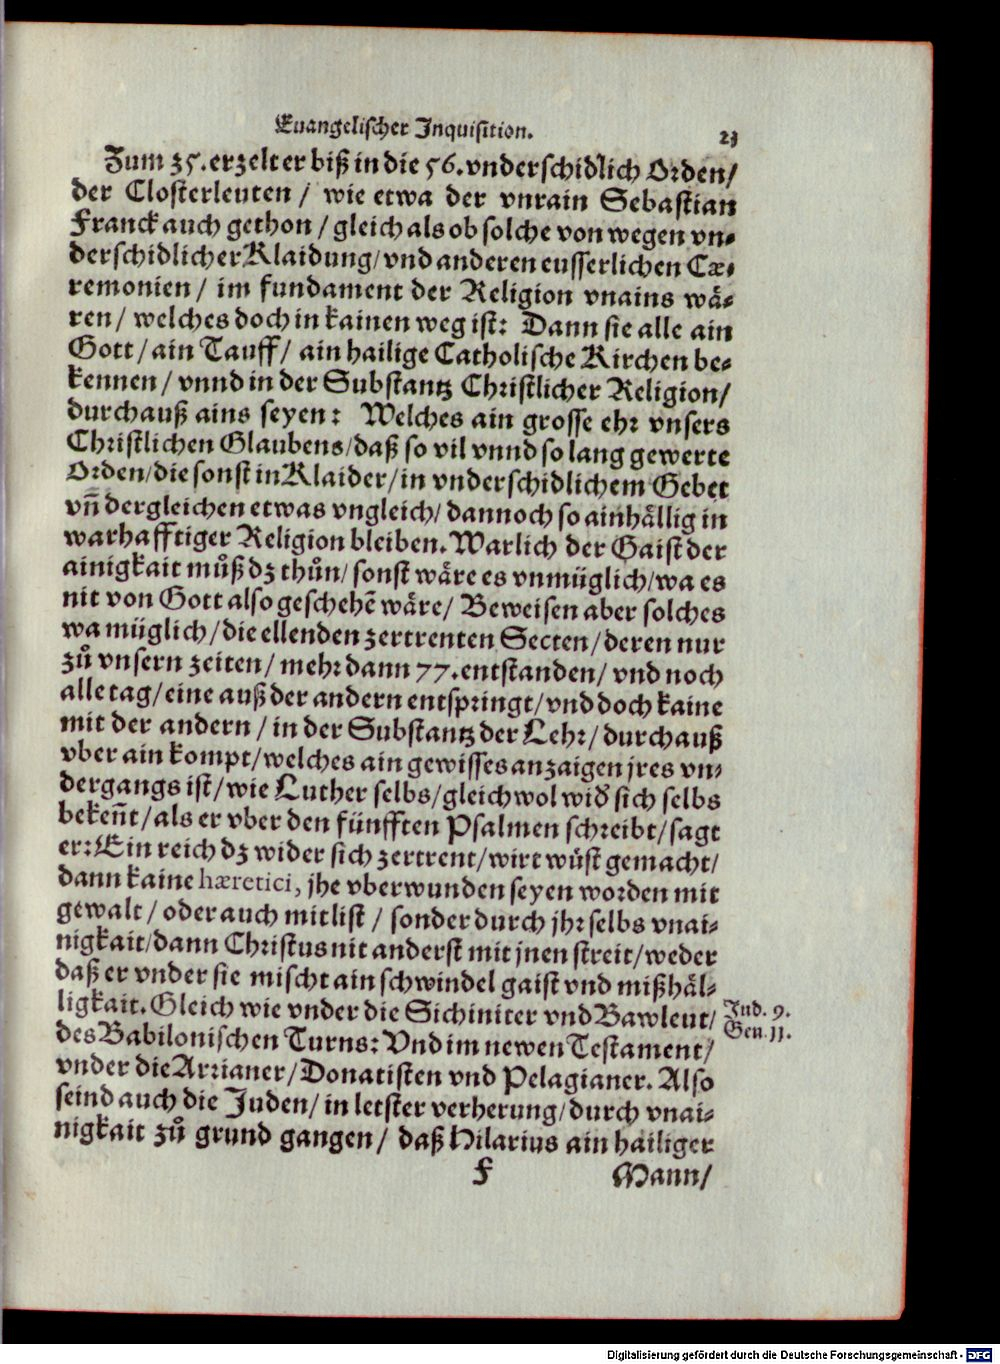 Euangelischer Inquisition. 23
Zum 35. erzelt er biß in die 56. vnderschidlich Orden/
der Closterleuten / wie etwa der vnrain Sebastian
Franck auch gethon / gleich als ob solche von wegen vn-
derschidlicher Klaidung/ vnd anderen eusserlichen Cæ-
remonien / im fundament der Religion vnains wå-
ren / welches doch in kainen weg ist: Dann sie alle ain
Gott / ain Tauff / ain hailige Catholische Kirchen be-
kennen / vnnd in der Substantz Christlicher Religion/
durchauß ains seyen: Welches ain grosse ehr vnsers
Christlichen Glaubens/ daß so vil vnnd so lang gewerte
Orden/ die sonst in Klaider/ in vnderschidlichem Gebet
vñ dergleichen etwas vngleich/ dannoch so ainhållig in
warhafftiger Religion bleiben. Warlich der Gaist der
ainigkait můß dz thůn/ sonst wåre es vnmüglich/ wa es
nit von Gott also geschehẽ wåre/ Beweisen aber solches
wa müglich/ die ellenden zertrenten Secten/ deren nur
zů vnsern zeiten/ mehr dann 77. entstanden/ vnd noch
alle tag/ eine auß der andern entspringt/ vnd doch kaine
mit der andern / in der Substantz der Lehr/ durchauß
vber ain kompt/ welches ain gewisses anzaigen jres vn-
dergangs ist/ wie Luther selbs/ gleichwol widꝰ sich selbs
bekeñt/ als er vber den fünfften Psalmen schreibt/ sagt
er: Ein reich dz wider sich zertrent/ wirt wůst gemacht/
dann kaine hæretici, jhe vberwunden seyen worden mit
gewalt / oder auch mit list / sonder durch jhr selbs vnai-
nigkait/ dann Christus nit anderst mit jnen streit/ weder
daß er vnder sie mischt ain schwindel gaist vnd mißhål-
ligkait. Gleich wie vnder die Sichiniter vnd Bawleut/
Jud. 9.
des Babilonischen Turns: Vnd im newen Testament/
Gen. 11.
vnder die Arrianer/ Donatisten vnd Pelagianer. Also
seind auch die Juden/ in letster verherung/ durch vnai-
nigkait zů grund gangen/ daß Hilarius ain hailiger
F Mann/
Digitalisierung gefördert durch die Deutsche Forschungsgemeinschaft - DFG